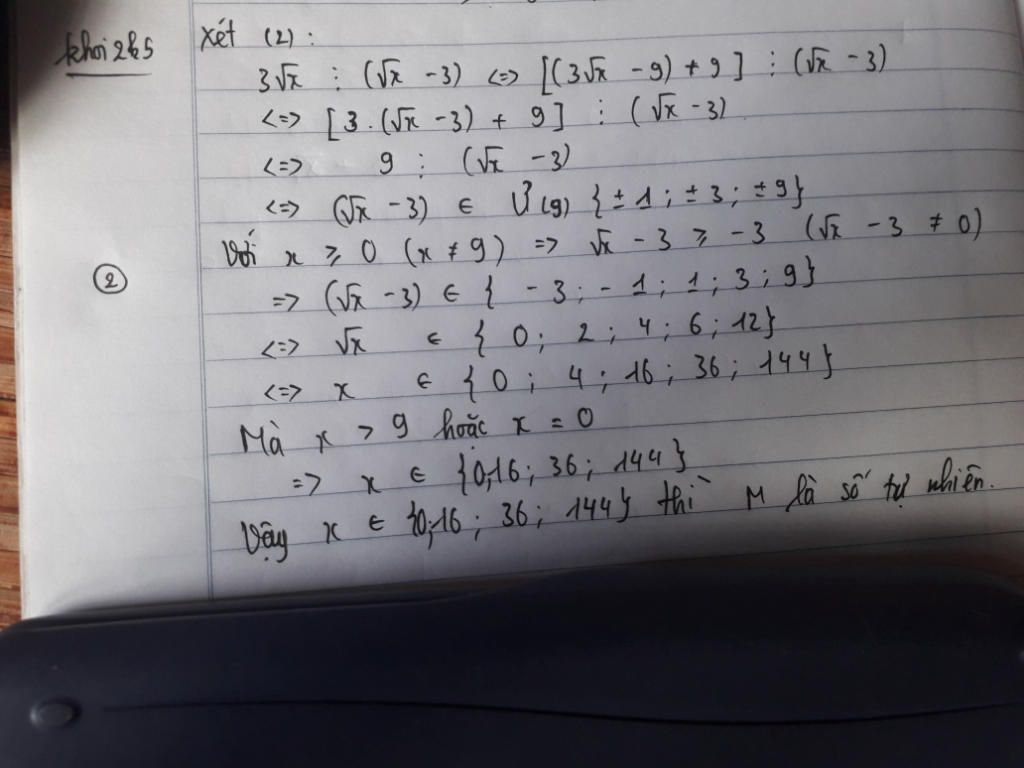 khoi2k5
Xét (2) :
3√x ⋮ (√x - 3) <=> [(3√x - 9) + 9] ⋮ (√x - 3)
<=> [3.(√x - 3) + 9] ⋮ (√x - 3)
<=> 9 ⋮ (√x - 3)
<=> (√x - 3) ∈ Ư(9) {±1; ±3; ±9}
Với x ⩾ 0 (x ≠ 9) => √x - 3 ⩾ -3 (√x - 3 ≠ 0)
②
=> (√x - 3) ∈ { -3; -1; 1; 3; 9}
<=> √x ∈ { 0; 2; 4; 6; 12}
<=> x ∈ { 0; 4; 16; 36; 144}
Mà x > 9 hoặc x = 0
=> x ∈ {0,16; 36; 144}
Vậy x ∈ {0,16; 36; 144} thì M là số tự nhiên.